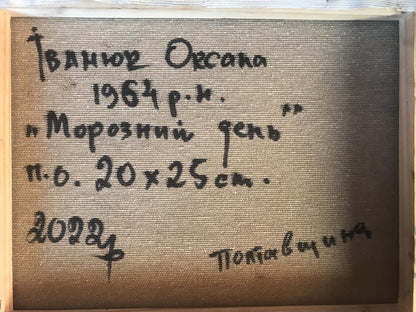 Іванюк Оксана
1964 р.н.
„Морозний день"
п.о. 20х25 ст.
2022 р
Полтавщина